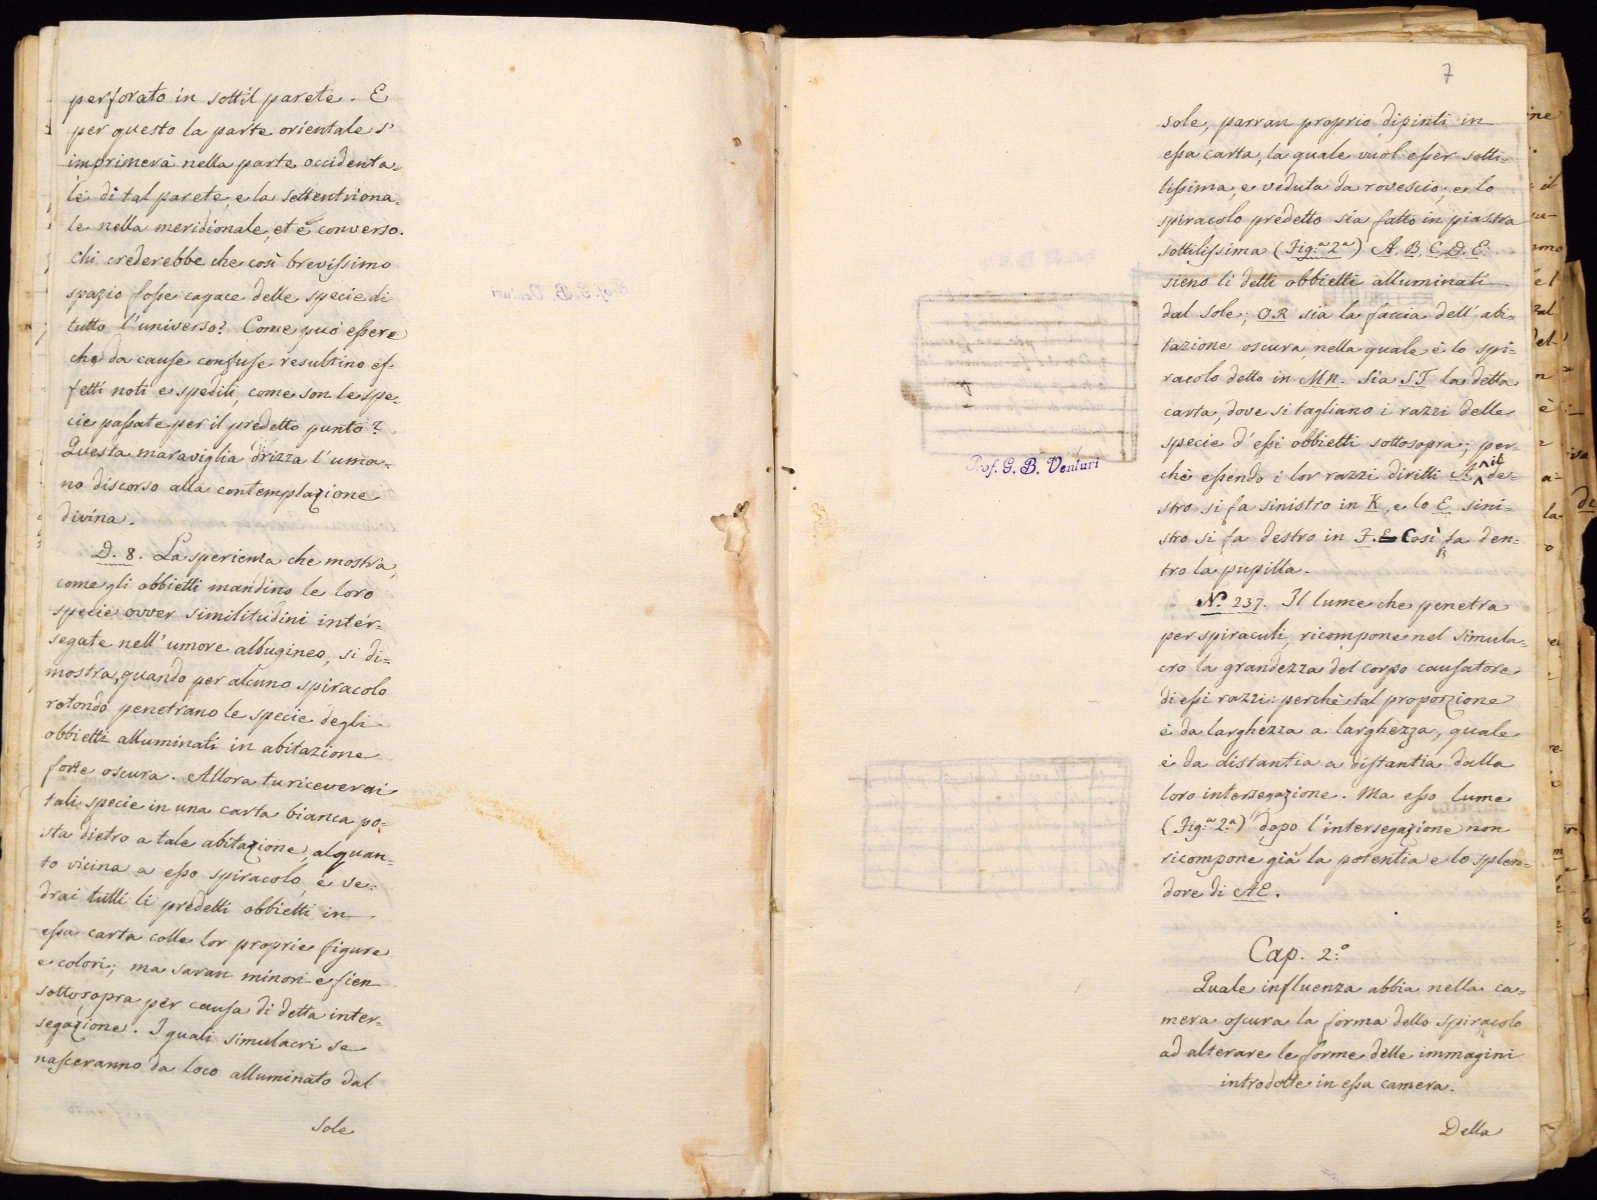 perforato in sottil parete. E
per questo la parte orientale s'
imprimerà nella parte occidenta=
le di tal parete, e la settentriona=
le nella meridionale, et è converso.
Chi crederebbe che così brevissimo
spazio fosse capace delle specie di
tutto l'universo? Come può essere
che da cause confuse resultino ef=
fetti noti e spediti, come son le spe=
cie passate per il predetto punto?
Questa maraviglia drizza l'uma=
no discorso alla contemplazione
divina.
D. 8. La sperienza che mostra,
come gli obbietti mandino le loro
specie ovver similitudini inter=
segate nell'umore albugineo, si di=
mostra, quando per alcuno spiracolo
rotondo penetrano le specie degli
obbietti alluminati in abitazione
forte oscura. Allora tu riceverai
tali specie in una carta bianca po=
sta dietro a tale abitazione, alquan=
to vicina a esso spiracolo, e ve=
drai tutti li predetti obbietti in
essa carta colle lor proprie figure
e colori; ma saran minori e fien
sottosopra per causa di detta inter=
segazione. I quali simulacri se
nasceranno da loco alluminato dal
Sole
7
sole, parran proprio dipinti in
essa carta, la quale vuol esser sotti=
lissima, e veduta da rovescio; e lo
spiracolo predetto sia fatto in piastra
sottilissima (Fig.ª 2ª) A. B. C. D. E
sieno li detti obbietti alluminati
dal sole; O.R sia la faccia dell'abi=
tazione oscura, nella quale è lo spi=
racolo detto in M n. Sia S.T la detta
carta, dove si tagliano i razzi delle
specie d'essi obbietti sottosopra; per=
chè essendo i lor razzi diritti A il de=
stro si fa sinistro in K, e lo E sini=
stro si fa destro in F. E Così fa den=
tro la pupilla.
N.º 237. Il lume che penetra
per spiraculi, ricompone nel simula=
cro la grandezza del corpo causatore
di essi razzi: perchè tal proporzione
è da larghezza a larghezza, quale
è da distantia a distantia dalla
loro intersegazione. Ma esso lume
(Fig.ª 2.ª) dopo l'intersegazione non
ricompone già la potentia e lo splen=
dore di AE.
Cap. 2.º
Quale influenza abbia nella ca=
mera oscura la forma dello spiracolo
ad alterare le forme delle immagini
introdotte in essa camera.
Della
Prof. G. B. Venturi